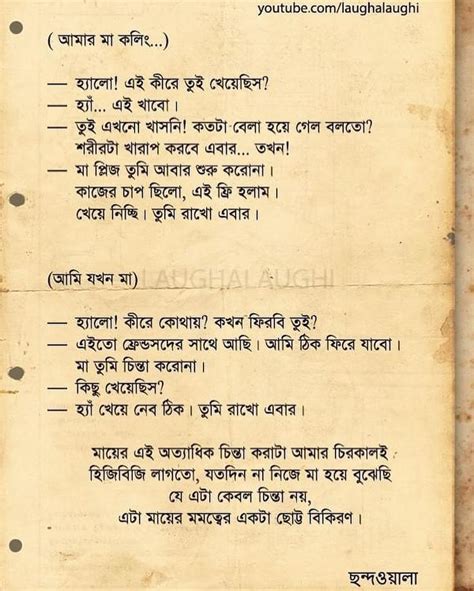 youtube.com/laughalaughi
( আমার মা কলিং...)
— হ্যালো! এই কীরে তুই খেয়েছিস?
— হ্যাঁ... এই খাবো।
— তুই এখনো খাসনি! কতটা বেলা হয়ে গেল বলতো?
শরীরটা খারাপ করবে এবার... তখন!
— মা প্লিজ তুমি আবার শুরু করোনা।
কাজের চাপ ছিলো, এই ফ্রি হলাম।
খেয়ে নিচ্ছি। তুমি রাখো এবার।
LAUGHALAUGHI
(আমি যখন মা)
— হ্যালো! কীরে কোথায়? কখন ফিরবি তুই?
— এইতো ফ্রেন্ডসদের সাথে আছি। আমি ঠিক ফিরে যাবো।
মা তুমি চিন্তা করোনা।
— কিছু খেয়েছিস?
— হ্যাঁ খেয়ে নেব ঠিক। তুমি রাখো এবার।
মায়ের এই অত্যাধিক চিন্তা করাটা আমার চিরকালই
হিজিবিজি লাগতো, যতদিন না নিজে মা হয়ে বুঝেছি
যে এটা কেবল চিন্তা নয়,
এটা মায়ের মমত্বের একটা ছোট্ট বিকিরণ।
ছন্দওয়ালা